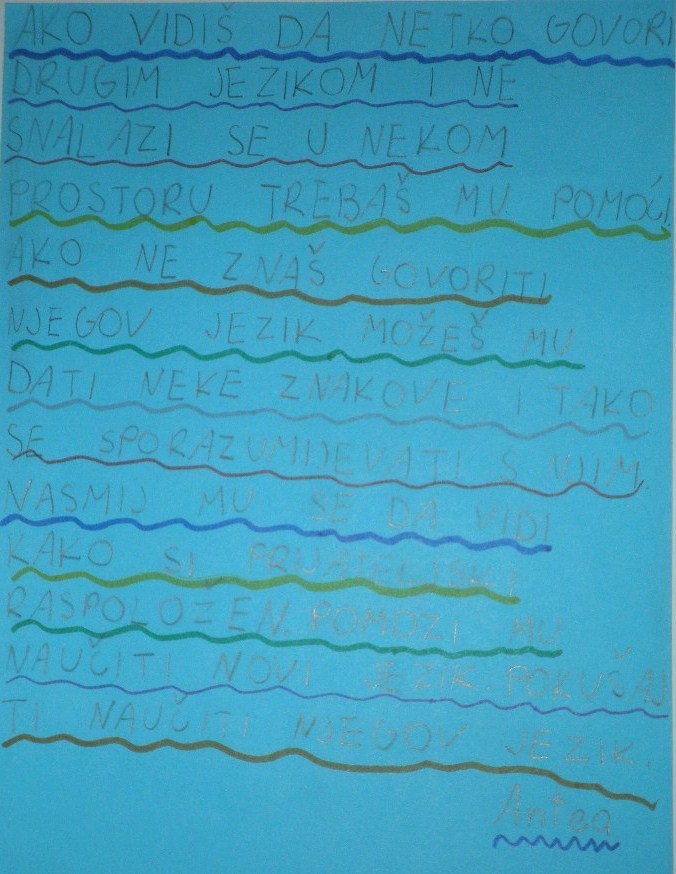 AKO VIDIŠ DA NETKO GOVORI
DRUGIM JEZIKOM I NE
SNALAZI SE U NEKOM
PROSTORU TREBAŠ MU POMOĆI.
AKO NE ZNAŠ GOVORITI
NJEGOV JEZIK MOŽEŠ MU
DATI NEKE ZNAKOVE I TAKO
SE SPORAZUMIJEVATI S NJIM.
NASMIJ MU SE DA VIDI
KAKO SI PRIJATELJSKI
RASPOLOŽEN. POMOZI MU
NAUČITI NOVI JEZIK. POKUŠAJ
TI NAUČITI NJEGOV JEZIK.
Antea